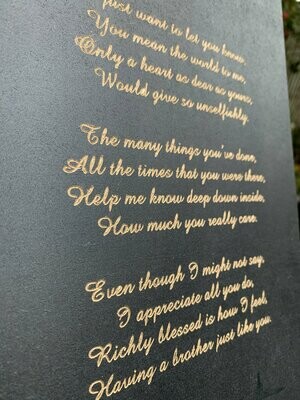 just want to let you know,
You mean the world to me,
Only a heart as dear as yours,
Would give so unselfishly.
The many things you've done,
All the times that you were there,
Help me know deep down inside,
How much you really care.
Even though I might not say,
I appreciate all you do,
Richly blessed is how I feel,
Having a brother just like you.